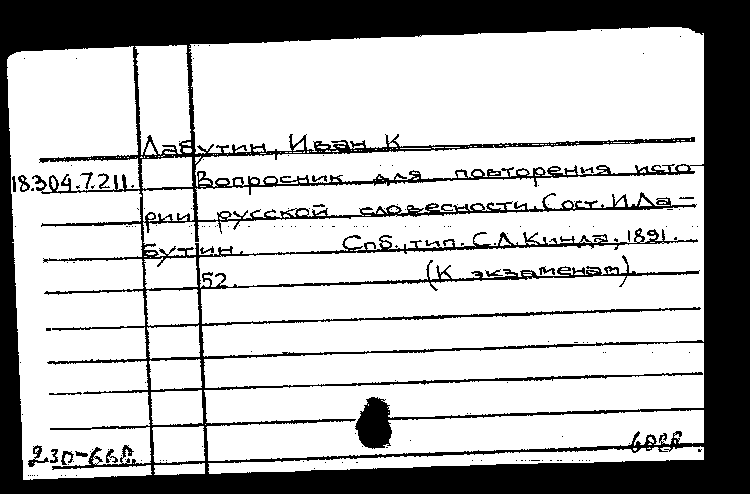 Лабутин, Иван К
18.304.7.211. Вопросник для повторения исто
рии русской словесности. Сост. И.Ла-
бутин. Спб., тип. С.Л.Кинда, 1891.
52. (К экзаменам).
230-66